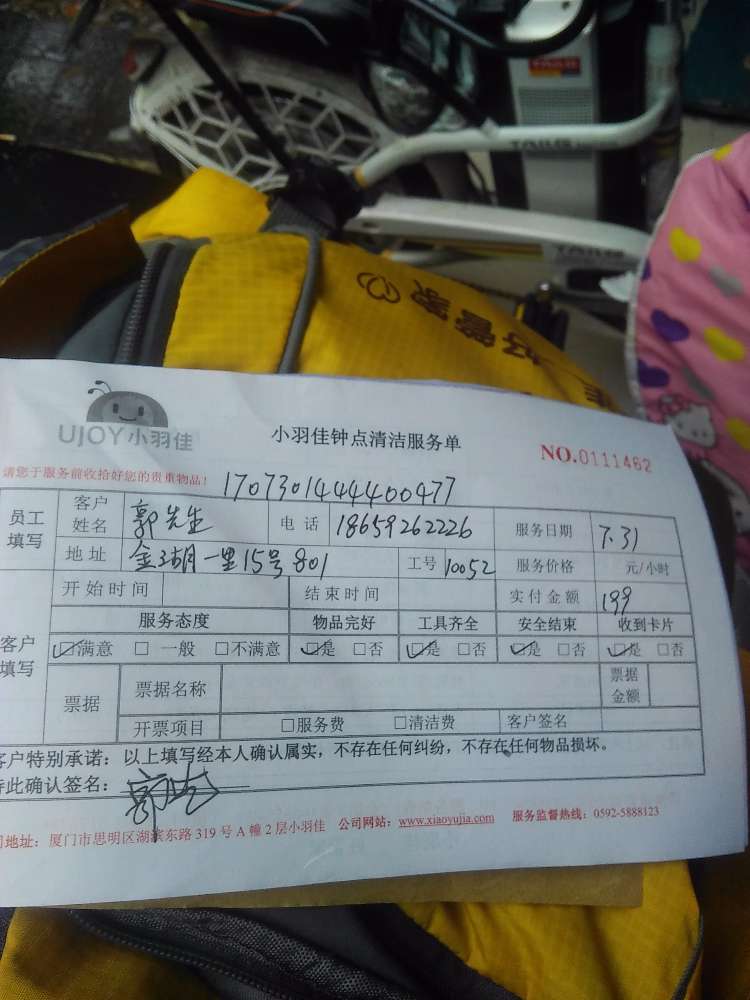 TAILG
TAILG
TAILG
好管家
UJOY小羽佳
小羽佳钟点清洁服务单
NO.0111462
请您于服务前收拾好您的贵重物品!
170730144400477
员工填写 客户姓名 郭先生 电话 18659262226 服务日期 7.31
地址 金湖一里15号801 工号 10052 服务价格 元/小时
开始时间 结束时间 实付金额 199
客户填写 服务态度 物品完好 工具齐全 安全结束 收到卡片
☑满意 □一般 □不满意 ☑是 □否 ☑是 □否 ☑是 □否 ☑是 □否
票据 票据名称 票据金额
开票项目 □服务费 □清洁费 客户签名
客户特别承诺:以上填写经本人确认属实,不存在任何纠纷,不存在任何物品损坏。
特此确认签名:
司地址:厦门市思明区湖滨东路319号A幢2层小羽佳 公司网站:www.xiaoyujia.com 服务监督热线:0592-5888123